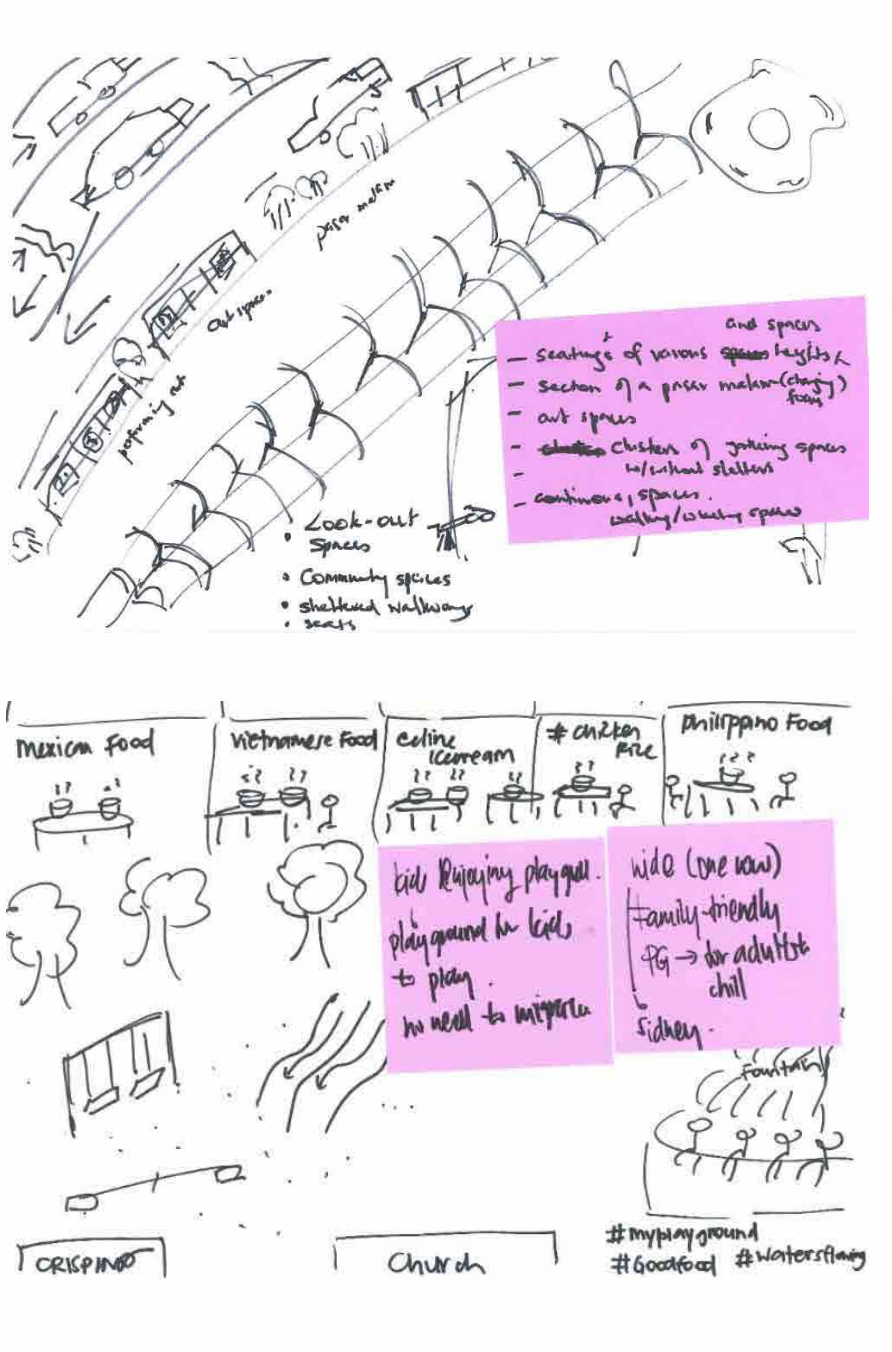 pasar malam
art spaces
performing art
and spaces
- seatings of various spaces heights &
- section of a pasar malam (changing)
- art spaces
- clusters of gathering spaces
w/without shelters
- continuous, spaces.
walking/ spaces
• Look-out
Spaces
• Community spaces
• sheltered walkways
• seats
Mexican Food
Vietnamese Food
celine
icecream
# chicken
rice
Philippino Food
kids enjoying
playground for kids
to play.
no need to
wide (one row)
family-friendly
PG → for adults to
chill
Sidney.
Fountain
CRISPINO
Church
#myplayground
#Goodfood #watersflowing